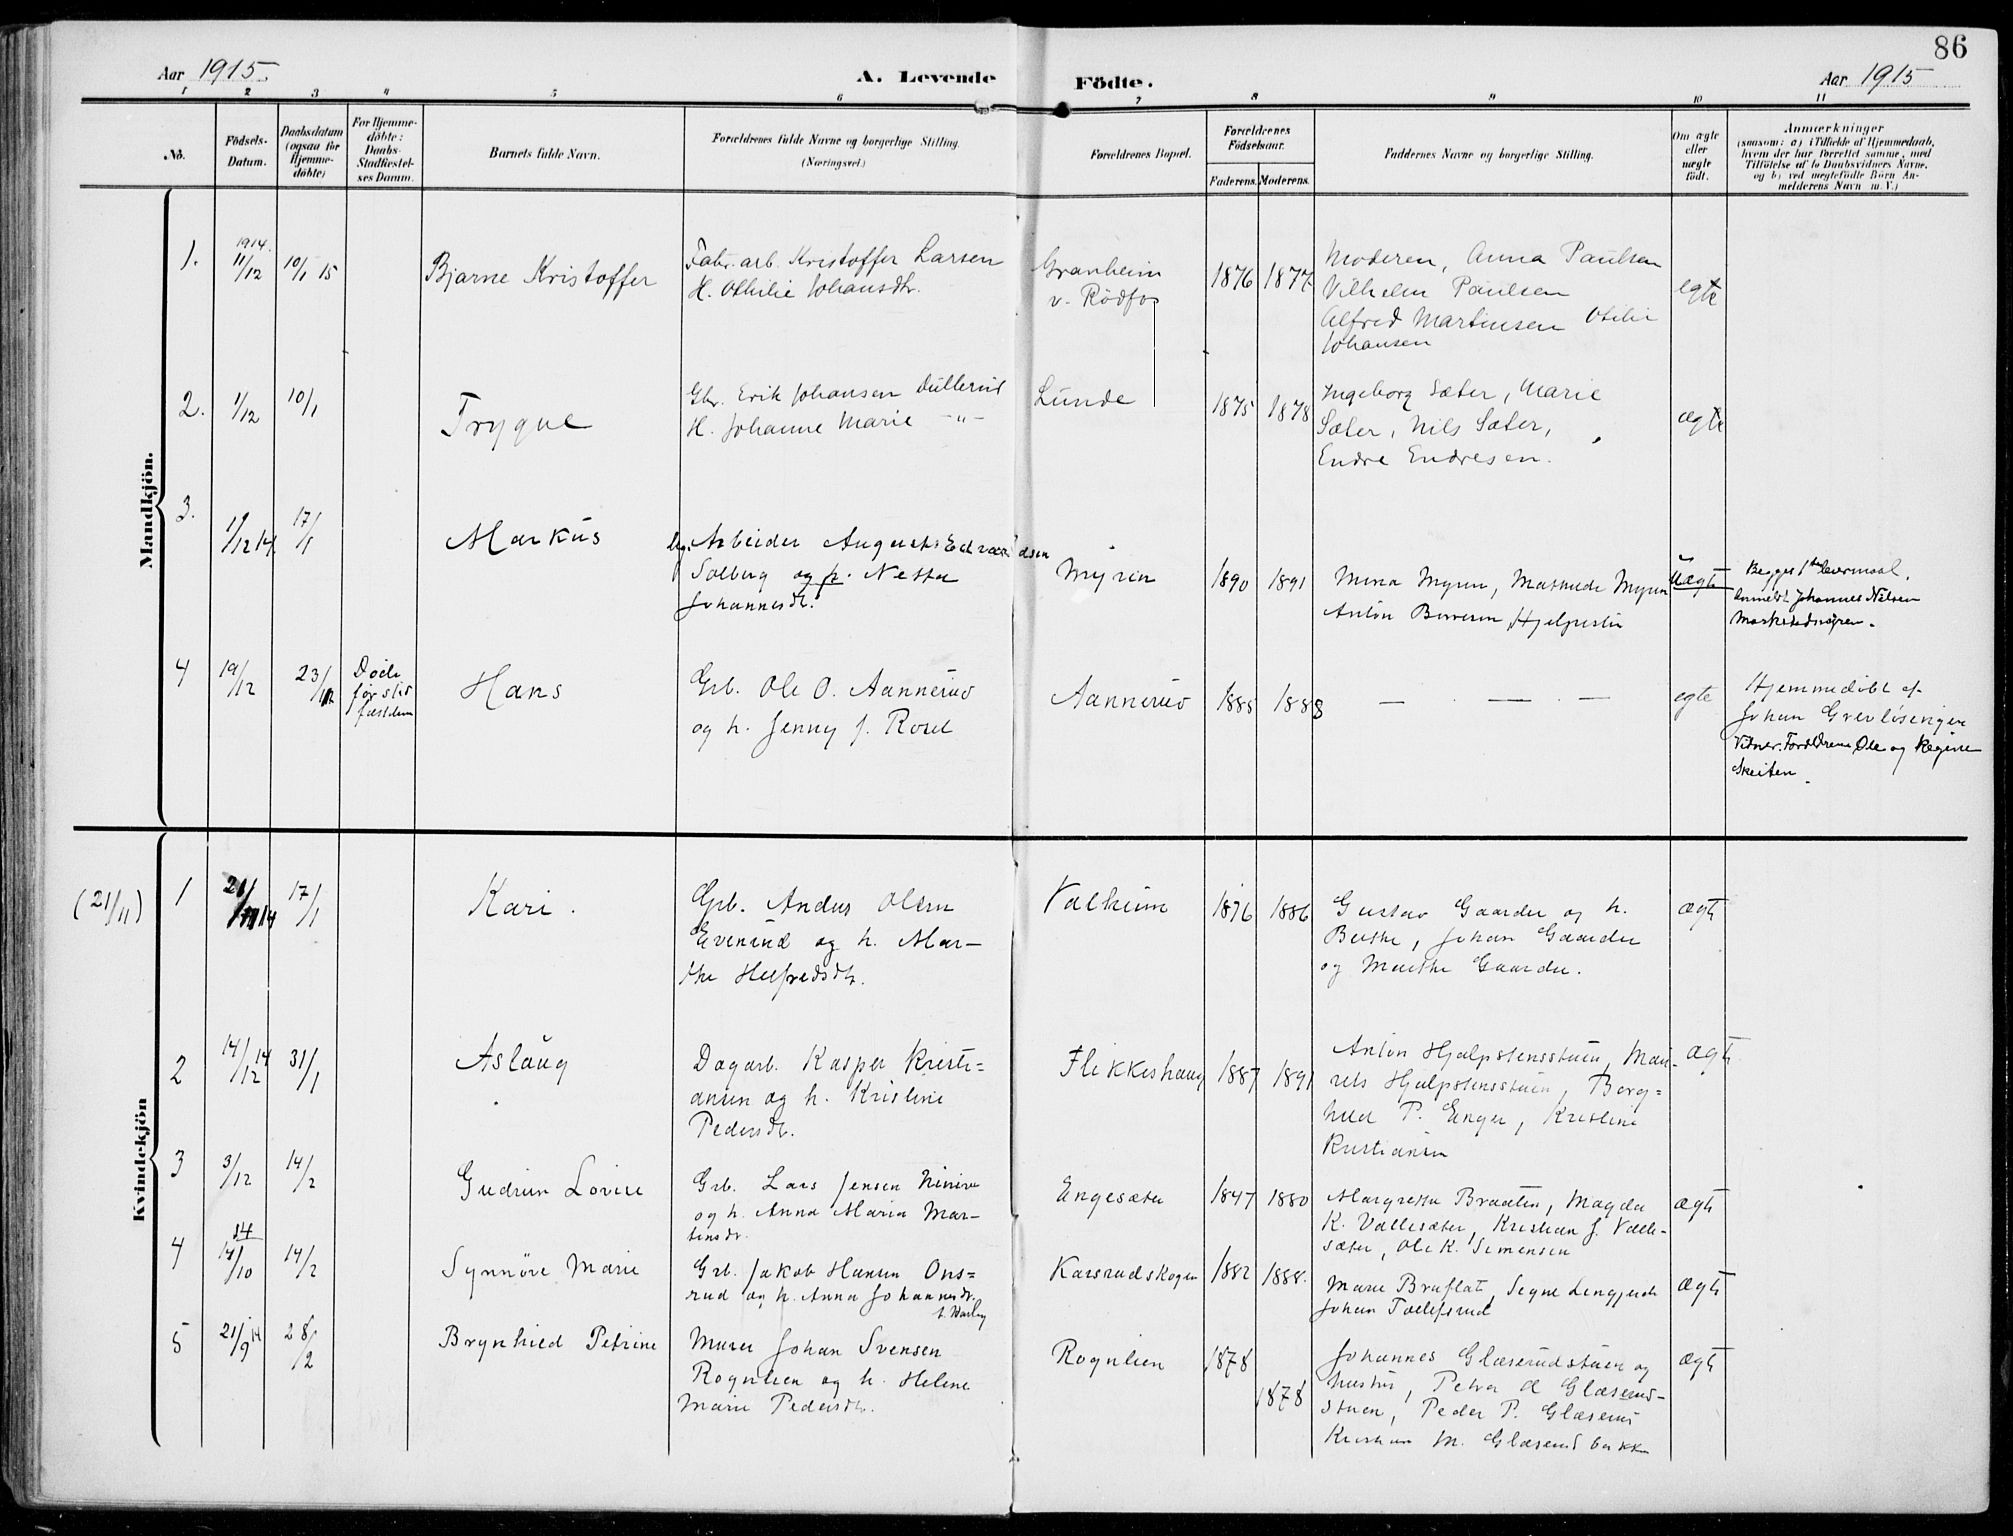 86
Aar 1915.
A. Levende Födte.
Aar 1915
1 2 3 4 5 6 7 8 9 10 11
No.
Födsels-
Datum.
Daabsdatum
(ogsaa for
Hjemme-
döbte)
For Hjemme-
döbte:
Daabs-
Stadfæstel-
ses Datum.
Barnets fulde Navn.
Forældrenes fulde Navne og borgerlige Stilling.
(Næringsvei)
Forældrenes Bopæl.
Forældrenes
Födselsaar.
Faderens. Moderens.
Faddernes Navne og borgerlige Stilling.
Om ægte
eller
uægte
födt.
Anmærkninger
(saasom: a) i Tilfælde af Hjemmedaab,
hvem der har forrettet samme, med
Tilföielse af to Daabsvidners Navne,
og b) ved uægtefödte Börn An-
melderens Navn m. V.)
Mandkjön.
1.
1914.
11/12
10/1 15
Bjarne Kristoffer
Fabr.arb. Kristoffer Larsen
H. Othilie Johansdtr.
Granheim
v. Rödfos
1876 1877
Moderen, Anna Paulsen
Vilhelm Paulsen
Alfred Martinsen Otilie
Johansen
egte
2.
1/12
10/1
Trygve
Gbr. Erik Johansen Dullerud
H. Johanne Marie -"-
Lunde
1875 1878
Ingeborg Sæter, Marie
Sæter, Nils Sæter,
Endre Endresen.
ægte
3.
19/12 14
17/1
Markus
Ug. Arbeider August Edvardsen
Solberg og p. Netta
Johannesdt.
Myren
1890 1891
Mina Myren, Mathilde Myren
Anton
Uægte
Begges 1ste leiermaal.
Anmeldt Johannes Nilsen
4
19/12
23/12
Døde
før stad
fæstelsen
Hans
Grb. Ole O. Aannerud
og h. Jenny J. Roset
Aannerud
1885 1888
— — —
egte
Hjemmedöbt af
Johan Grevløsingen
Vidner. Forældrene, Ole og Regine
Skeiten.
Kvindekjön
(21/11)
1
21/11 14
17/1
Kari.
Grb. Anders Olsen
Evenrud og h. Mar-
the Helfredsdtr.
Valheim
1876 1886
Gustav Gaarder og h.
Berthe, Johan Gaarder
og Marthe Gaarder.
ægte
2
14/12 14
31/1
Aslaug
Dagarb. Kasper Kristi=
ansen og h. Kristine
Pedersdt.
Flikkeshaug
1887 1891
Anton Hjelpstensstuen, Mau-
rits Hjelpstensstuen, Borg=
hild P. Enger, Kristine
Kristiansen
ægte
3
3/12
14/2
Gudrun Lovise
Grb. Lars Jensen Ninive
og h. Anna Maria Mar-
tinsdt.
Engesæter
1847 1880
Margrethe Braaten, Magda
K. Vallesæter, Kristian J. Valle-
sæter, Ole K. Simensen
ægte
4
14
14/10
14/2
Synnöve Marie
Grb. Jakob Hansen Ons=
rud og h. Anna Johannesdt.
Karsrudskogen
1882 1888.
Marie Braflat, Signe
Johan Tollefsrud
ægte
5
21/9 14
28/2
Brynhild Petrine
Murer Johan Svensen
Rognlien og h. Helene
Marie Pedersdt.
Rognlien
1878
1878
Johannes Glæserudstuen og
hustru, Petra A Glæserud-
stuen, Peder P. Glæserud
Kristian M. Glæserudbakken
ægte